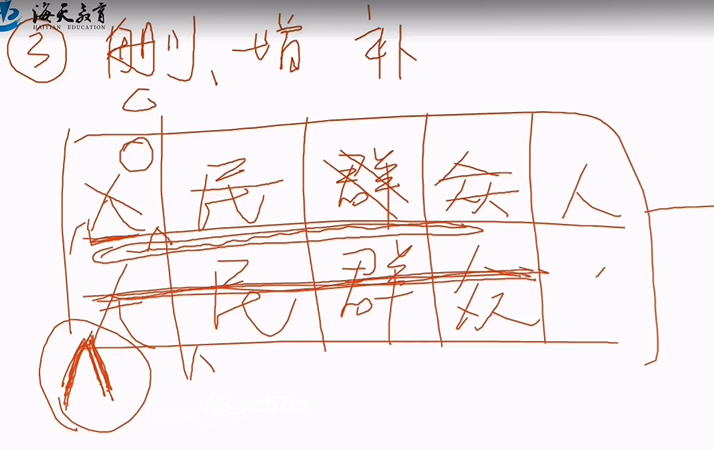 海天教育
HAITIAN EDUCATION
③ 删、增 补
人民群众人
人民群众
AS_xp57in